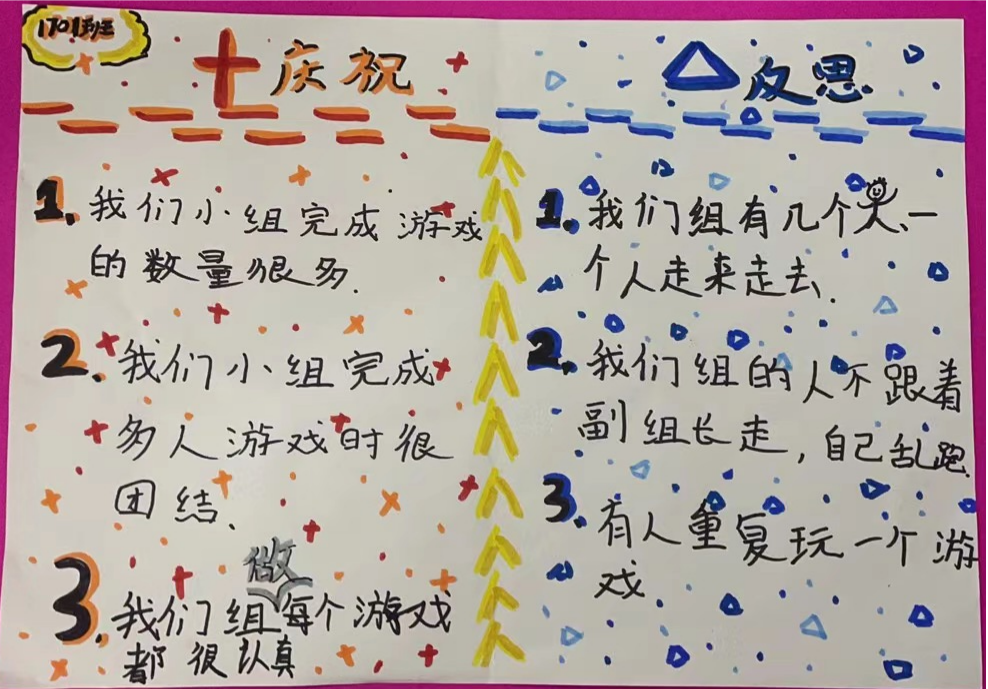 1701班
十庆祝
1.我们小组完成游戏
的数量很多.
2.我们小组完成
多人游戏时很
团结、
3.我们组做每个游戏
都很认真
△反思
1.我们组有几个人、一
个人走来走去.
2.我们组的人不跟着
副组长走，自己乱跑.
3.有人重复玩一个游
戏